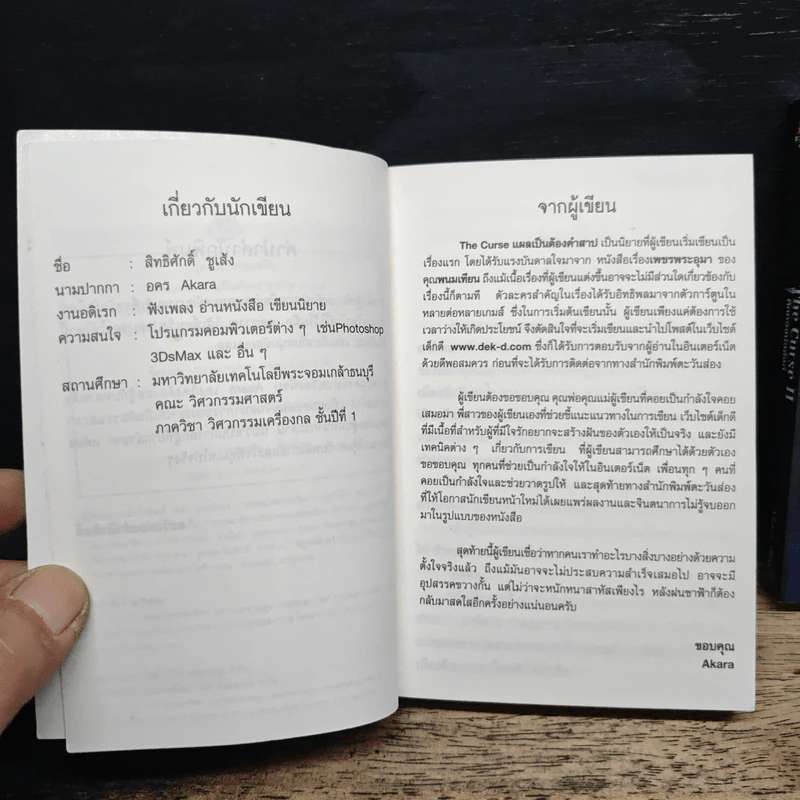 เกี่ยวกับนักเขียน
ชื่อ : สิทธิศักดิ์ ชูเส้ง
นามปากกา : อคร Akara
งานอดิเรก : ฟังเพลง อ่านหนังสือ เขียนนิยาย
ความสนใจ : โปรแกรมคอมพิวเตอร์ต่าง ๆ เช่นPhotoshop
3DsMax และ อื่น ๆ
สถานศึกษา : มหาวิทยาลัยเทคโนโลยีพระจอมเกล้าธนบุรี
คณะ วิศวกรรมศาสตร์
ภาควิชา วิศวกรรมเครื่องกล ชั้นปีที่ 1
จากผู้เขียน
The Curse แผลเป็นต้องคำสาป เป็นนิยายที่ผู้เขียนเริ่มเขียนเป็น
เรื่องแรก โดยได้รับแรงบันดาลใจมาจาก หนังสือเรื่องเพชรพระอุมา ของ
คุณพนมเทียน ถึงแม้เนื้อเรื่องที่ผู้เขียนแต่งขึ้นอาจจะไม่มีส่วนใดเกี่ยวข้องกับ
เรื่องนี้ก็ตามที ตัวละครสำคัญในเรื่องได้รับอิทธิพลมาจากตัวการ์ตูนใน
หลายต่อหลายเกมส์ ซึ่งในการเริ่มต้นเขียนนั้น ผู้เขียนเพียงแค่ต้องการใช้
เวลาว่างให้เกิดประโยชน์ จึงตัดสินใจที่จะเริ่มเขียนและนำไปโพสต์ในเว็บไซต์
เด็กดี www.dek-d.com ซึ่งก็ได้รับการตอบรับจากผู้อ่านในอินเตอร์เน็ต
ด้วยดีพอสมควร ก่อนที่จะได้รับการติดต่อจากทางสำนักพิมพ์ตะวันส่อง
ผู้เขียนต้องขอขอบคุณ คุณพ่อคุณแม่ผู้เขียนที่คอยเป็นกำลังใจคอย
เสมอมา พี่สาวของผู้เขียนเองที่ช่วยชี้แนะแนวทางในการเขียน เว็บไซต์เด็กดี
ที่มีเนื้อที่สำหรับผู้ที่มีใจรักอยากจะสร้างฝันของตัวเองให้เป็นจริง และยังมี
เทคนิคต่าง ๆ เกี่ยวกับการเขียน ที่ผู้เขียนสามารถศึกษาได้ด้วยตัวเอง
ขอขอบคุณ ทุกคนที่ช่วยเป็นกำลังใจให้ในอินเตอร์เน็ต เพื่อนทุก ๆ คนที่
คอยเป็นกำลังใจและช่วยวาดรูปให้ และสุดท้ายทางสำนักพิมพ์ตะวันส่อง
ที่ให้โอกาสนักเขียนหน้าใหม่ได้เผยแพร่ผลงานและจินตนาการไม่รู้จบออก
มาในรูปแบบของหนังสือ
สุดท้ายนี้ผู้เขียนเชื่อว่าหากคนเราทำอะไรบางสิ่งบางอย่างด้วยความ
ตั้งใจจริงแล้ว ถึงแม้มันอาจจะไม่ประสบความสำเร็จเสมอไป อาจจะมี
อุปสรรคขวางกั้น แต่ไม่ว่าจะหนักหนาสาหัสเพียงไร หลังฝนซาฟ้าก็ต้อง
กลับมาสดใสอีกครั้งอย่างแน่นอนครับ
ขอบคุณ
Akara
The Curse II